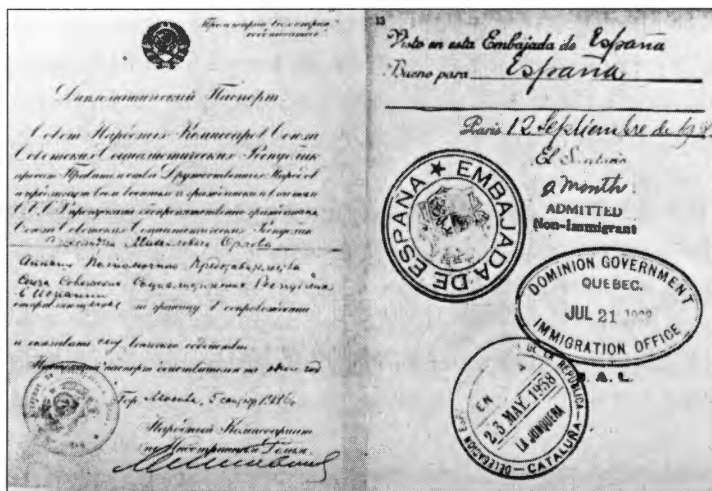 Пролетарии всех стран
соединяйтесь
Дипломатический Паспорт
Совет Народных Комиссаров Союза
Советских Социалистических Республик
просит Правительства Дружественных Народов
и предлагает всем военным и гражданским властям
С.С.С.Р. пропускать беспрепятственно гражданина
Союза Советских Социалистических Республик
Александра Михайловича Орлова
Атташе Полномочного Представительства
Союза Советских Социалистических Республик
в Испании
за границу в сопровождении
и оказывать ему всякое содействие.
паспорт действителен на один год
Гор. Москва, 5 1936
Народный Комиссариат
по Иностранным Делам.
13
Visto en esta Embajada de España
Bueno para España
Paris 12 Septiembre de
El Secretario
a month
ADMITTED
Non-Immigrant
★ EMBAJADA DE ESPAÑA
DOMINION GOVERNMENT
QUEBEC.
JUL 21
IMMIGRATION OFFICE
A. L.
DELEGACION DE LA REPUBLICA
EN
23 MAY. 1938
LA JONQUERA
CATALUÑA